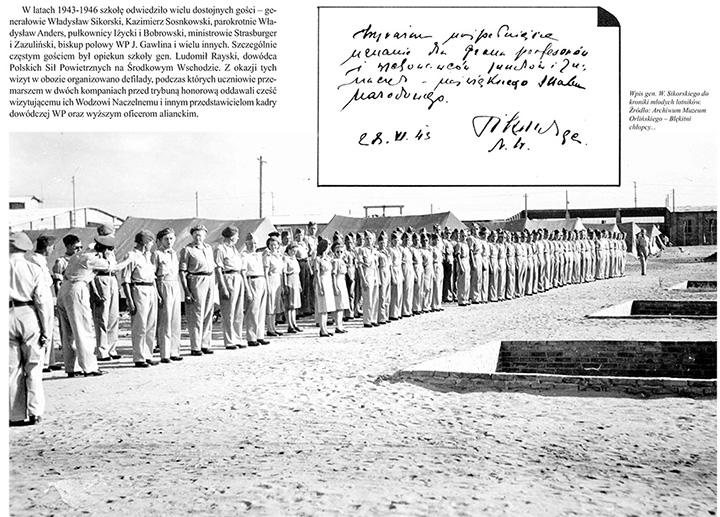 W latach 1943-1946 szkołę odwiedziło wielu dostojnych gości – ge-
nerałowie Władysław Sikorski, Kazimierz Sosnkowski, parokrotnie Wła-
dysław Anders, pułkownicy Iżycki i Bobrowski, ministrowie Strasburger
i Zazuliński, biskup polowy WP J. Gawlina i wielu innych. Szczególnie
częstym gościem był opiekun szkoły gen. Ludomił Rayski, dowódca
Polskich Sił Powietrznych na Środkowym Wschodzie. Z okazji tych
wizyt w obozie organizowano defilady, podczas których uczniowie prze-
marszem w dwóch kompaniach przed trybuną honorową oddawali cześć
wizytującemu ich Wodzowi Naczelnemu i innym przedstawicielom kadry
dowódczej WP oraz wyższym oficerom alianckim.
Wyrażam
uznanie dla grona profesorów
i wychowawców
Narodowego.
28.VI.43
N.W.
Wpis gen. W. Sikorskiego do
kroniki młodych lotników.
Źródło: Archiwum Muzeum
Orlińskiego – Błękitni
chłopcy...